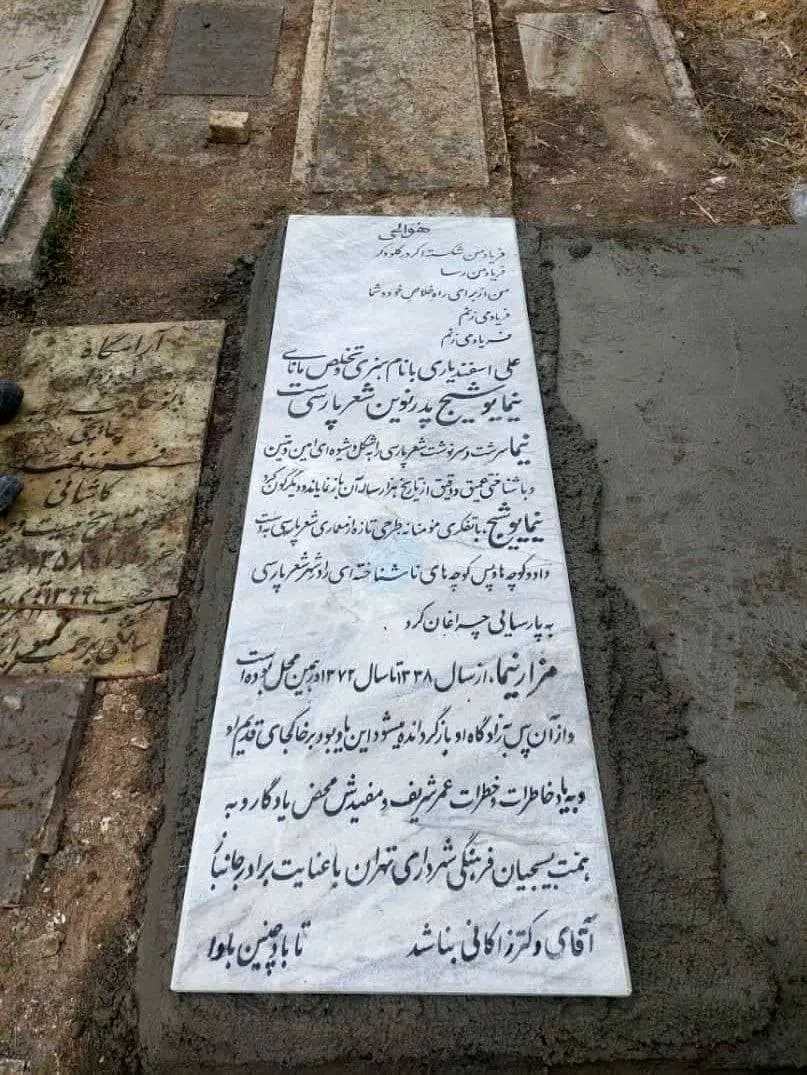 هوالحی
فریاد من شکسته اگر در گلو وگر
فریاد من رسا
من از برای راه خلاص خود و شما
فریاد می زنم
فریاد می زنم
علی اسفندیاری با نام هنری و تخلص مانای
نیما یوشیج پدر نوین شعر پارسی ست
نیما سرشت و سرنوشت شعر پارسی را به شکل و شیوه ای امین و متین
و با شناختی عمیق و دقیق از تاریخ هزار ساله آن باز نمایاند و دیگرگون کرد
نیما یوشیج، با تفکری مؤمنانه طرحی تازه از معماری شعر پارسی به دست
داد و کوچه ها و پس کوچه های ناشناخته ای را در شهر شعر پارسی
به پارسایی چراغان کرد
مزار نیما، از سال ۱۳۳۸ تا سال ۱۳۷۲ در همین محل بوده است
و از آن پس به زادگاه او بازگردانده میشود این یادبود بر خاکجای قدیم او
و به یاد خاطرات و خطرات عمر شریف و مفیدش محض یادگار و به
همت بسیجیان فرهنگی شهرداری تهران با عنایت برادر جانباز
آقای دکتر زاکانی بنا شد تا باد چنین بادا
آرامگاه
بانو
فرزند
کاشانی
۱۳۵۸
۱۳۹۹